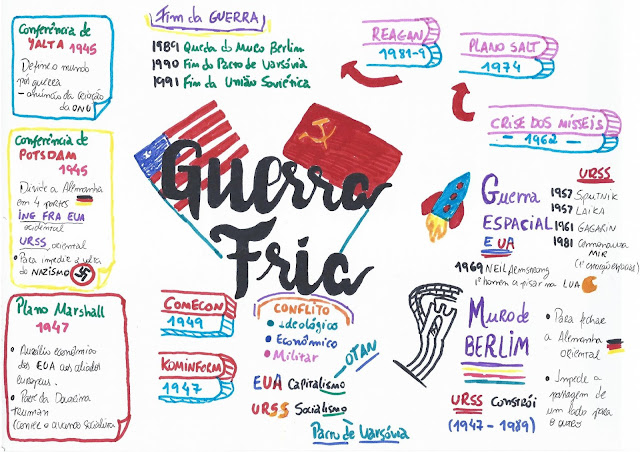 Conferência de
YALTA 1945
Define o mundo
pós guerra
- anúncio da criação
da ONU
Conferência de
POTSDAM
1945
Divide a Alemanha
em 4 partes
ING FRA EUA
ocidental
URSS oriental
• Para impedir a volta
do NAZISMO
Plano Marshall
1947
• Auxílio econômico
dos EUA aos aliados
europeus.
• Parte da Doutrina
Truman
(conter o avanço socialista)
Fim da GUERRA
1989 Queda do Muro Berlim
1990 Fim do Pacto de Varsóvia
1991 Fim da União Soviética
REAGAN
1981-9
PLANO SALT
1974
CRISE DOS MÍSSEIS
- 1962 -
Guerra
Fria
COMECON
1949
KOMINFORM
1947
CONFLITO
• ideológico
• Econômico
• Militar
OTAN
EUA Capitalismo
URSS Socialismo
Pacto de Varsóvia
Guerra
ESPACIAL
EUA
1969 NEIL Armstrong
1º homem a pisar na LUA
URSS
1957 SPUTNIK
1957 LAIKA
1961 GAGARIN
1981
MIR
(1ª estação espacial)
Muro de
BERLIM
URSS Constrói
(1947 - 1989)
• Para fechar
a Alemanha
oriental
• Impede a
passagem de
um lado para
o outro